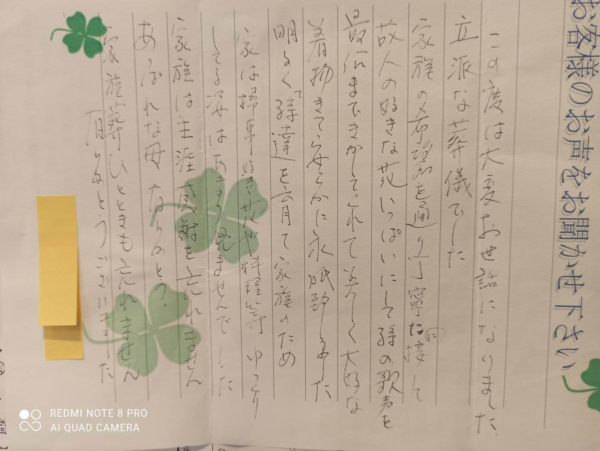 お客様のお声をお聞かせ下さい
この度は大変お世話になりました
立派な葬儀でした
家族の希望を通り丁寧に接して
故人の好きな花いっぱいにして孫の歌声を
最后まできかしてくれて美しく大好な
着物きて安らかに永眠致しました
明るく孫達を育て家族のため
家は掃事 料理等 ゆっくり
してる姿はあまり見ませんでした
家族は生涯 を忘れません
あっぱれな母 ならびとの
家族葬ひとときも忘れません
有難とうございました
REDMI NOTE 8 PRO
AI QUAD CAMERA